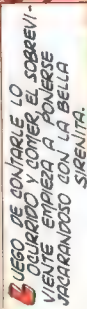 LUEGO DE CONTARLE LO
OCURRIDO Y COMER, EL SOBREVI-
VIENTE EMPIEZA A PONERSE
JACARANDOSO CON LA BELLA
SIRENITA.